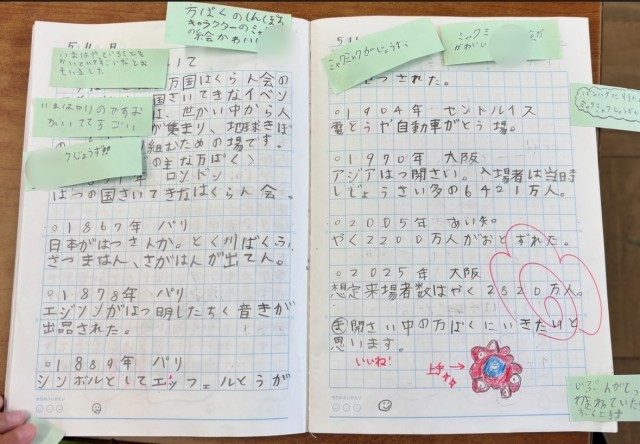 万ばくのしんぼる
キャラクターのミャ
の絵かわいい
いまはやっている
かいていてすごいなと
もいました
いまはやりのですね
かいててすごい
うじょうず!!
いて
万国はくらん会の
国さいてきなイベン
は、世かい中から人
が集まり、地球きぼ
組むためのの場です。
の主な万ぱく〉
年 ロンドン
はつの国さいてきなはくらん会。
○1867年 パリ
日本がはつさんか。とく川ばくふ、
さつまはん、さがはんが出てん。
○1878年 パリ
エジソンがはつ明したちく音きが
出品された。
○1889年 パリ
シンボルとしてエッフェルとうが
ミャクミャクがじょうず
ミャクミ
かわいい
せつされた。
○1904年 セントルイス
電とうや自動車がとう場。
○1970年 大阪
アジアはつ開さい。入場者は当時
しじょうさい多の6421万人。
○2005年 あい知
やく2200万人がおとずれた。
○2025年 大阪
想定来場者数はやく2820万人。
開さい中の万ぱくにいきたいと
思います。
いいね!
上手